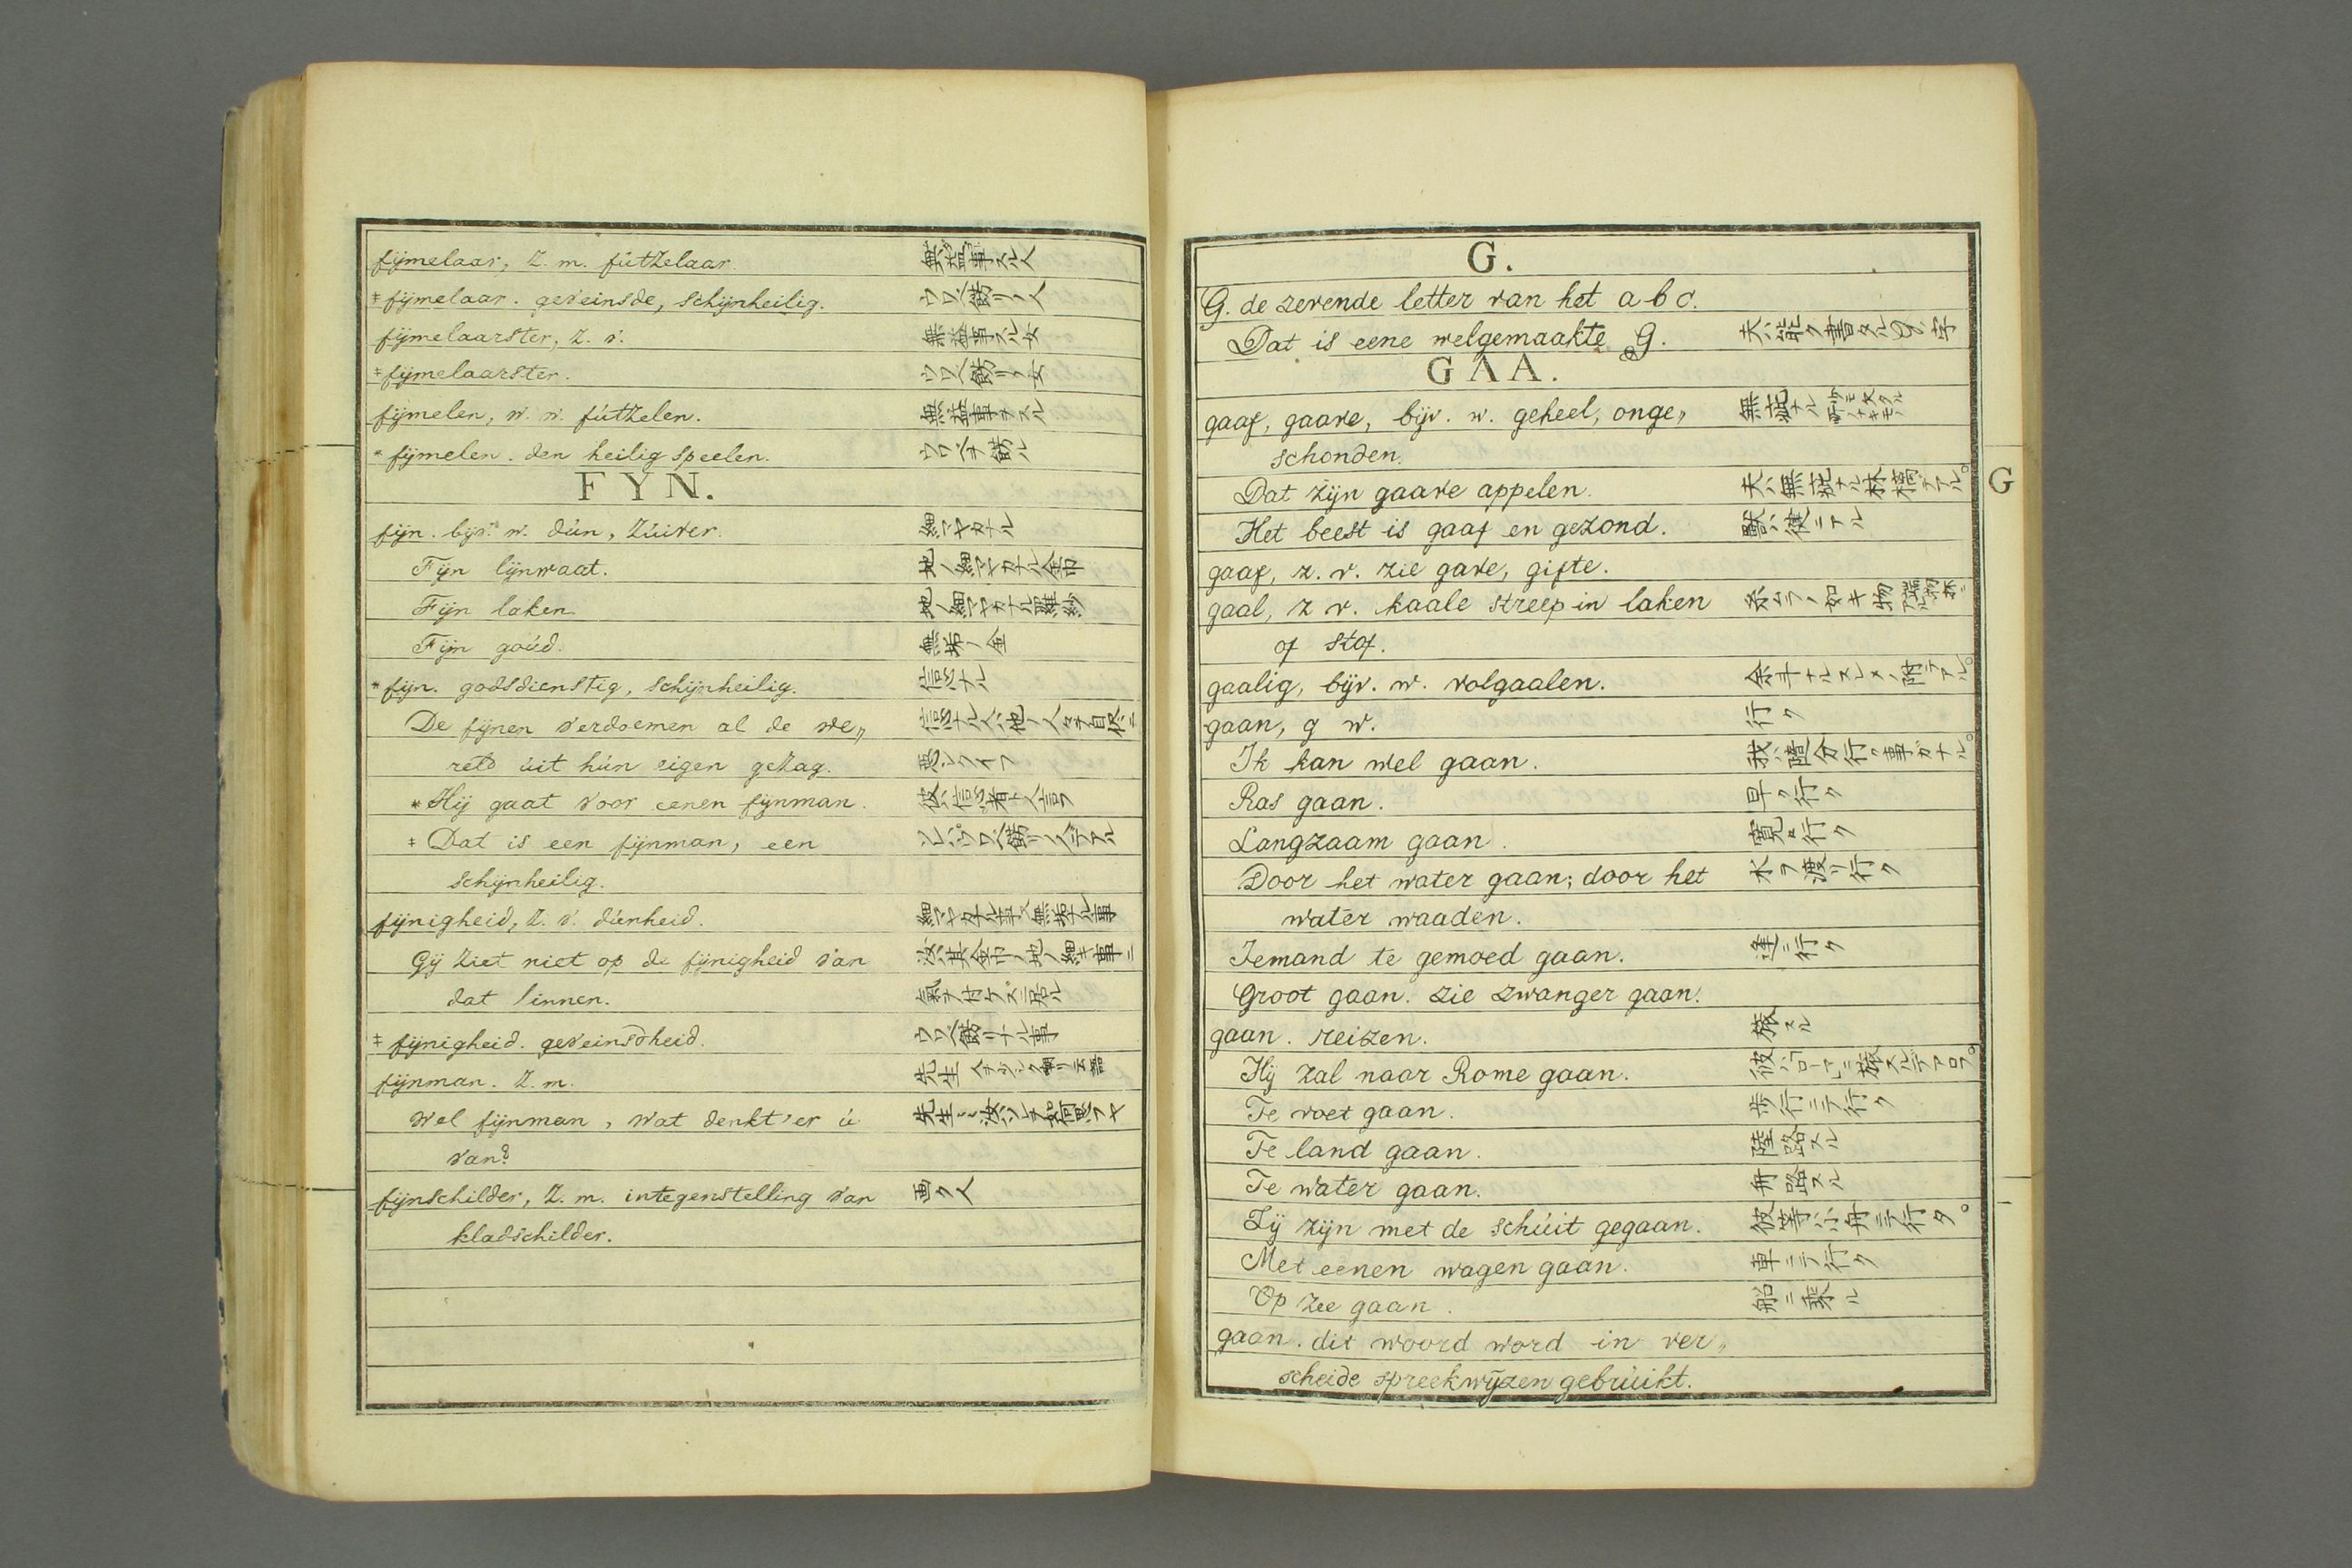 fijmelaar, Z. m. fútzelaar. 無益事スル人
‡fijmelaar. geveinsde, schijnheilig. ウワベ飾リノ人
fijmelaarster, Z. v. 無益事スル女
‡fijmelaarster. ウワベ飾リノ女
fijmelen, w. w. fútzelen. 無益事ヲスル
*fijmelen. den heilig speelen. ウワベヲ飾ル
FYN.
fijn. bijv. w. dún, zúiver. 細マヤカナル
Fijn lijnwaat. 地ノ細マヤカナル
Fijn laken. 地ノ細マヤカナル羅紗
Fijn goúd. 無垢ノ金
*fijn. godsdienstig, schijnheilig. 信心ナル
De fijnen verdoemen al de we„
reld úit hún eigen gezag. 悪シクイフ
*Hij gaat voor eenen fijnman.
‡Dat is een fijnman, een
schijnheilig.
fijnigheid, Z. v. dúnheid.
Gij ziet niet op de fijnigheid van
dat linnen. 氣ヲ付ケズニ居ル
‡fijnigheid. geveinsdheid. ウワベ飾リナル事
fijnman. Z. m. 先生
Wel fijnman, wat denkt'er ú
van?
fijnschilder, Z. m. integenstelling van 画ク人
kladschilder.
G.
G. de zevende letter van het a b c.
Dat is eene welgemaakte G. 夫ハ能ク書タルG字
GAA.
gaaf, gaave, bijv. w. geheel, onge„ 無疵ナル
schonden.
Dat zijn gaave appelen. 夫ハ無疵ナル林檎デアル。
G
Het beest is gaaf en gezond. 獸ハ健ニアル
gaaf, z. v. zie gave, gifte.
gaal, z v. kaale streep in laken 糸ムラノ如キ物
of stof.
gaalig, bijv. w. volgaalen.
gaan, g w. 行ク
Ik kan wel gaan. 我ハ隨分行ク事ガナル。
Ras gaan. 早ク行ク
Langzaam gaan. 寛々行ク
Door het water gaan; door het 水ヲ渡リ行ク
water waaden.
Iemand te gemoed gaan. 逢ニ行ク
Groot gaan. zie zwanger gaan.
gaan. reizen. 旅スル
Hij zal naar Rome gaan. 彼ハローマニ旅スルデアロフ。
Te voet gaan. 歩行ニテ行ク
Te land gaan. 陸路スル
Te water gaan. 舟路スル
Zij zijn met de schúit gegaan. 彼等ハ小舟ニテ行タ。
Met eenen wagen gaan. 車ニテ行ク
Op zee gaan. 船ニ乗ル
gaan. dit woord word in ver„
scheide spreekwijzen gebrúikt.